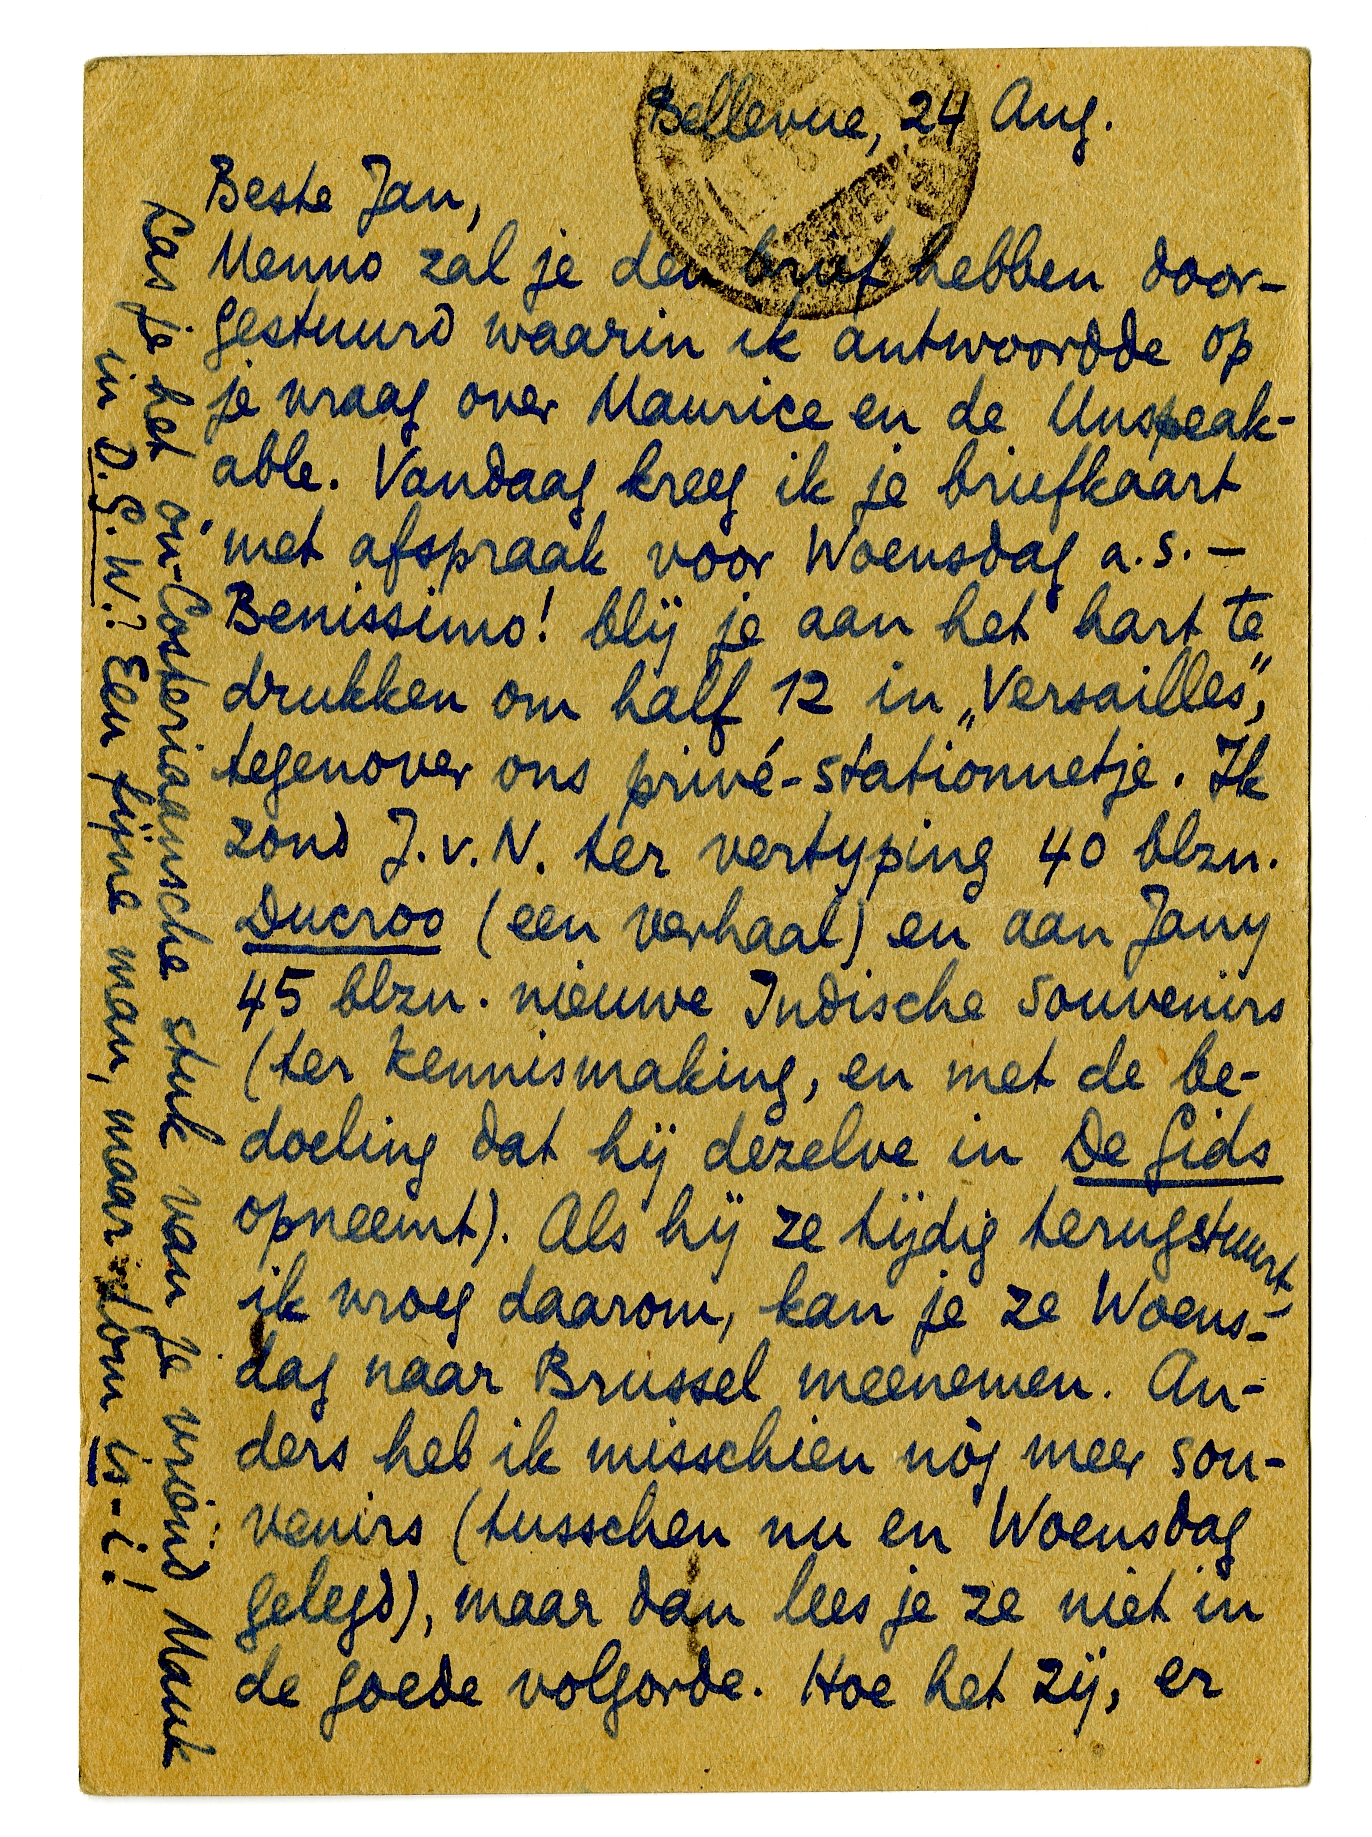 Bellevue, 24 Aug.
Beste Jan,
Menno zal je den brief hebben door-
gestuurd waarin ik antwoordde op
je vraag over Maurice en de Unspeak-
able. Vandaag kreeg ik je briefkaart
met afspraak voor Woensdag a.s. –
Benissimo! blij je aan het hart te
drukken om half 12 in „Versailles”,
tegenover ons privé-stationnetje. Ik
zond J.v.N. ter vertyping 40 blzn.
Ducroo (een verhaal) en aan Jany
45 blzn. nieuwe Indische souvenirs
(ter kennismaking, en met de be-
doeling dat hij dezelve in De Gids
opneemt). Als hij ze tijdig terugstuurt,
ik vroeg daarom, kan je ze Woens-
dag naar Brussel meenemen. An-
ders heb ik misschien nòg meer sou-
venirs (tusschen nu en Woensdag
gelegd), maar dan lees je ze niet in
de goede volgorde. Hoe het zij, er
Las je het ón-Costeriaansche stuk van je vriend Mank
in D.G.W.? Een fijne man, maar dom is-i!